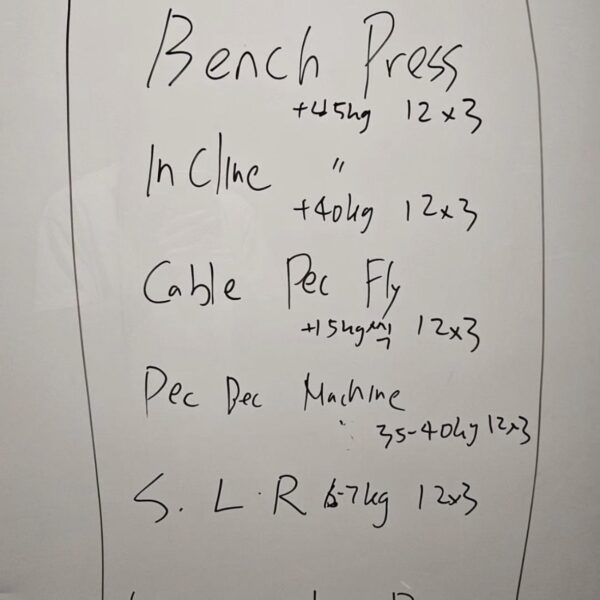 Bench Press
+45kg 12x3
InCline "
+40kg 12x3
Cable Pec Fly
+15kg 12x3
Pec Dec Machine
35-40kg 12x3
S. L. R 6-7kg 12x3